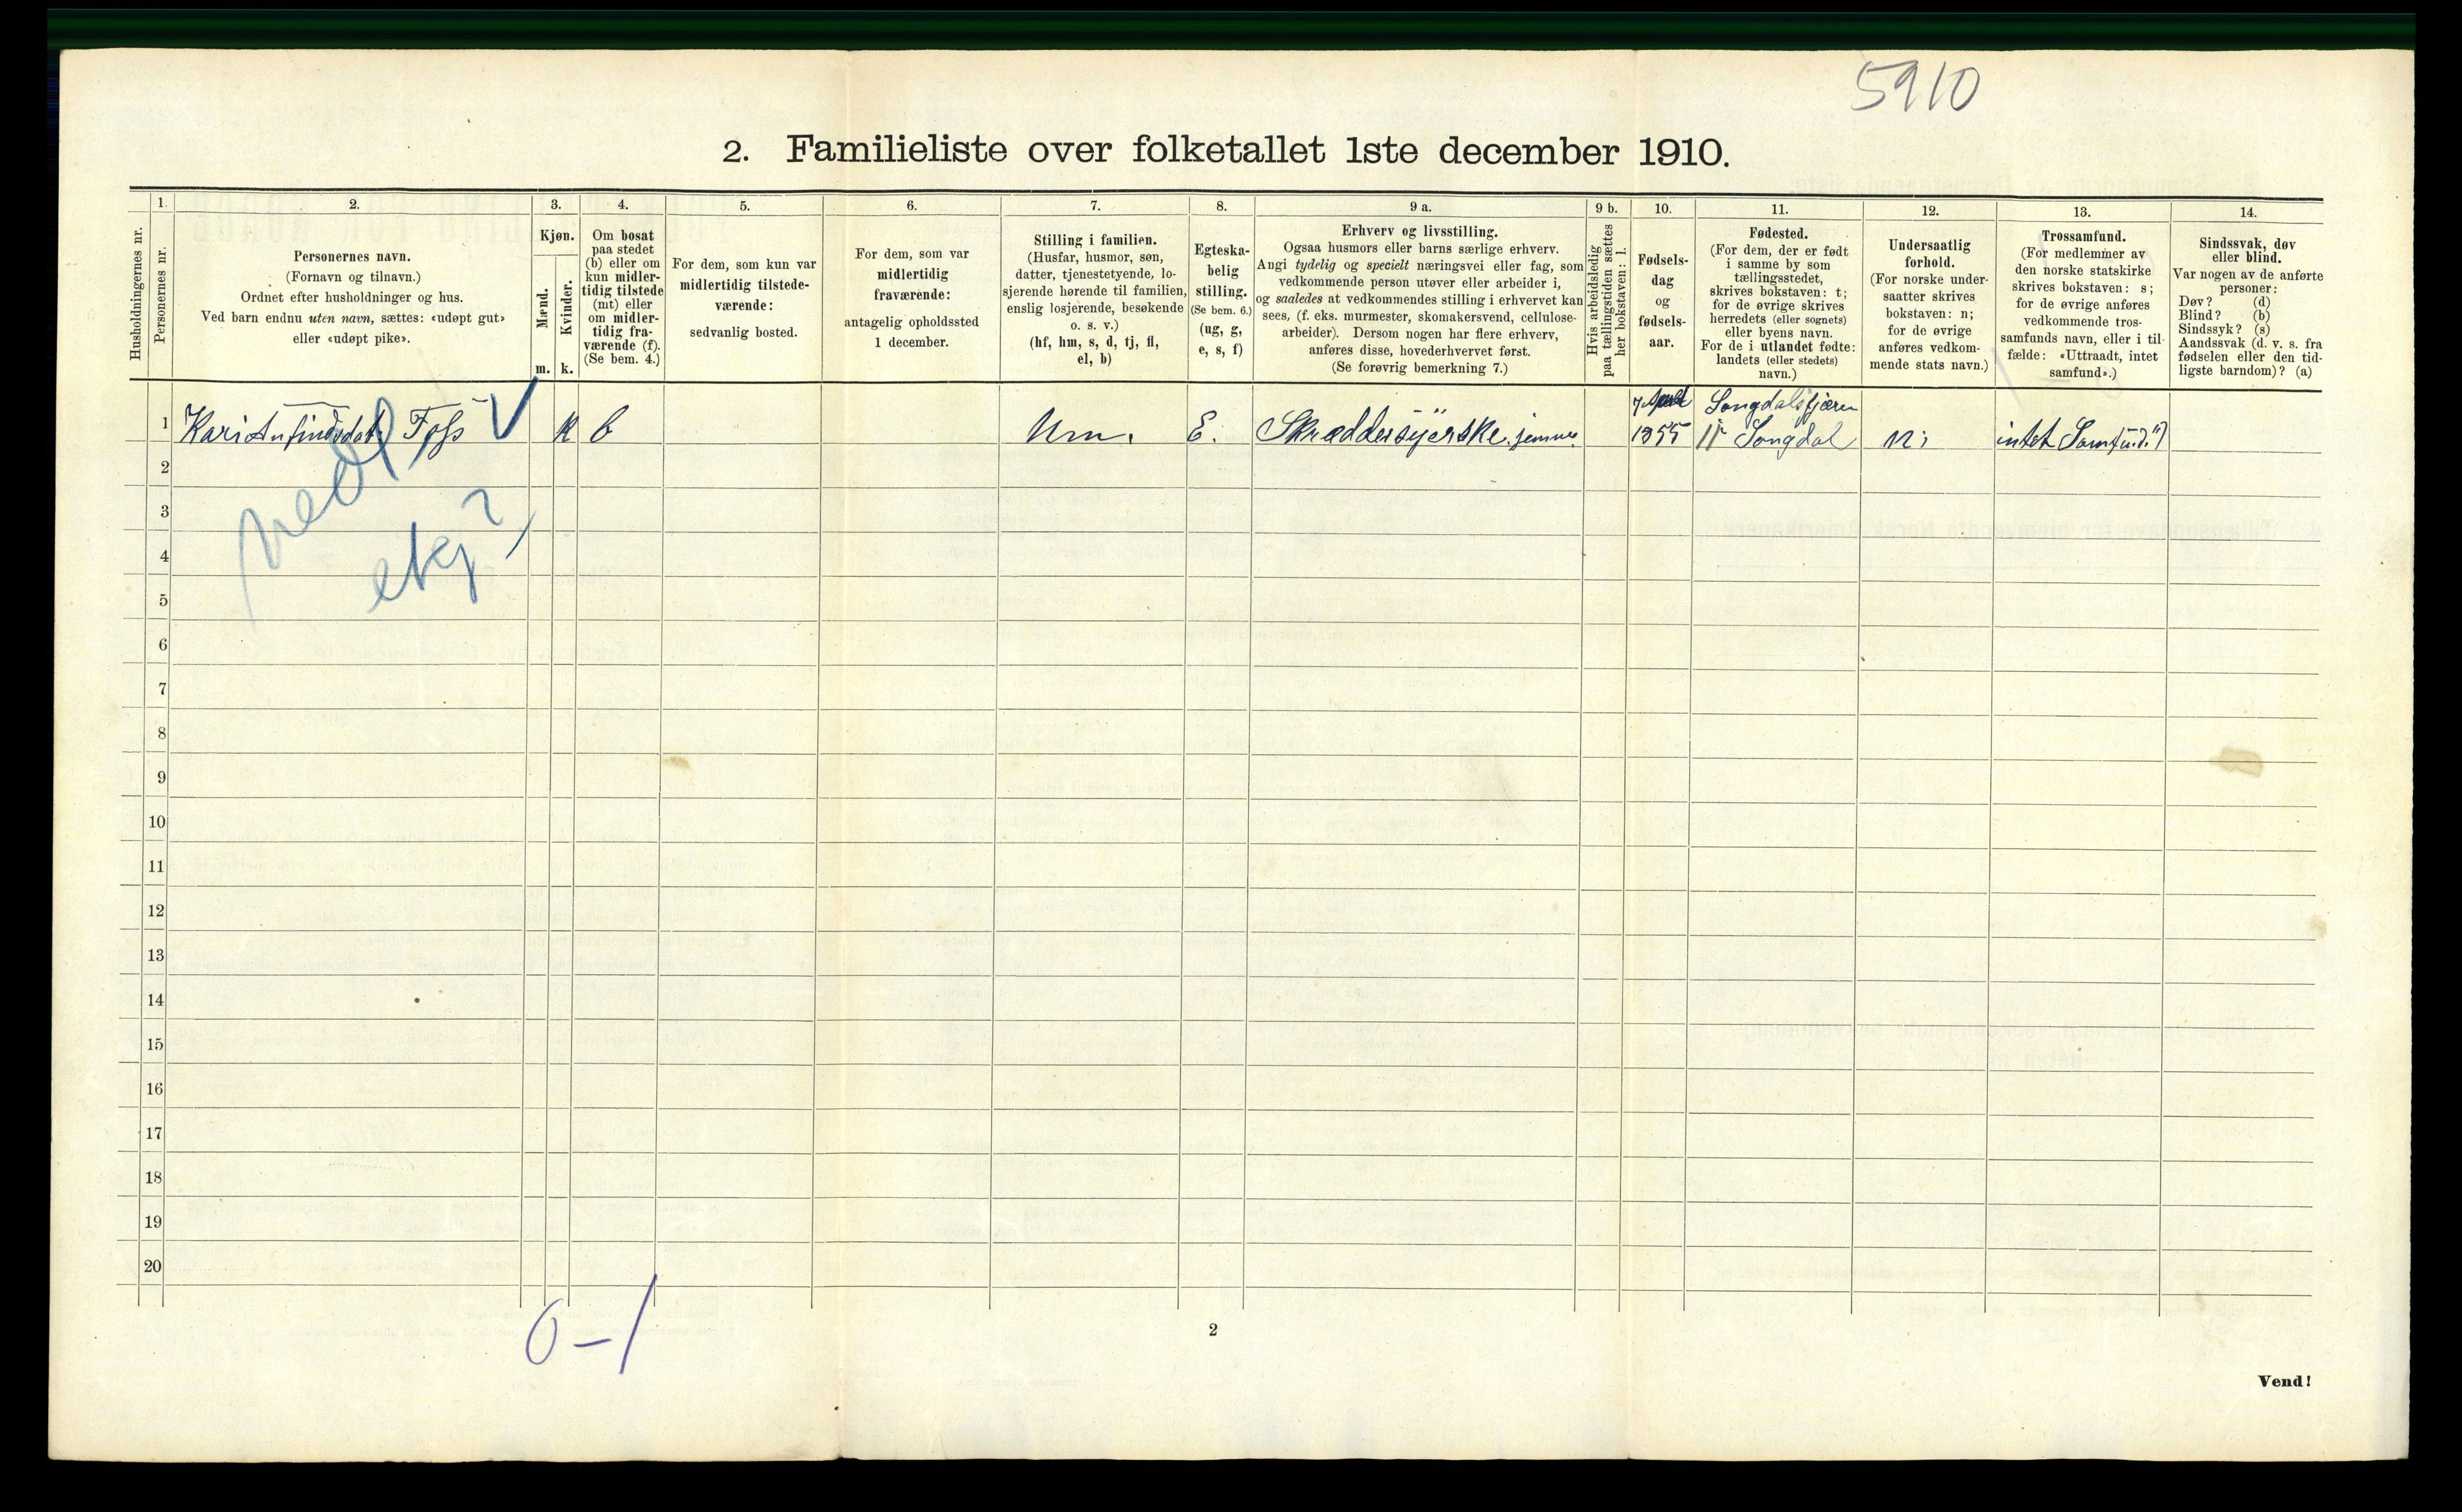 5910
2. Familieliste over folketallet 1ste december 1910.
Husholdningernes nr.
1.
Personernes nr.
2.
Personernes navn.
(Fornavn og tilnavn.)
Ordnet efter husholdninger og hus.
Ved barn endnu uten navn, sættes: «udøpt gut»
eller «udøpt pike».
3.
Kjøn.
Mænd.
Kvinder.
m. k.
4.
Om bosat
paa stedet
(b) eller om
kun midler-
tidig tilstede
(mt) eller
om midler-
tidig fra-
værende (f).
(Se bem. 4.)
5.
For dem, som kun var
midlertidig tilstede-
værende:
sedvanlig bosted.
6.
For dem, som var
midlertidig
fraværende:
antagelig opholdssted
1 december.
7.
Stilling i familien.
(Husfar, husmor, søn,
datter, tjenestetyende, lo-
sjerende hørende til familien,
enslig losjerende, besøkende
o. s. v.)
(hf, hm, s, d, tj, fl,
el, b)
8.
Egteska-
belig
stilling.
(Se bem. 6.)
(ug, g,
e, s, f)
9 a.
Erhverv og livsstilling.
Ogsaa husmors eller barns særlige erhverv.
Angi tydelig og specielt næringsvei eller fag, som
vedkommende person utøver eller arbeider i,
og saaledes at vedkommendes stilling i erhvervet kan
sees, (f. eks. murmester, skomakersvend, cellulose-
arbeider). Dersom nogen har flere erhverv,
anføres disse, hovederhvervet først.
(Se forøvrig bemerkning 7.)
9 b.
Hvis arbeidsledig
paa tællingstiden sættes
her bokstaven: l.
10.
Fødsels-
dag
og
fødsels-
aar.
11.
Fødested.
(For dem, der er født
i samme by som
tællingsstedet,
skrives bokstaven: t;
for de øvrige skrives
herredets (eller sognets)
eller byens navn.
For de i utlandet fødte:
landets (eller stedets)
navn.)
12.
Undersaatlig
forhold.
(For norske under-
saatter skrives
bokstaven: n;
for de øvrige
anføres vedkom-
mende stats navn.)
13.
Trossamfund.
(For medlemmer av
den norske statskirke
skrives bokstaven: s;
for de øvrige anføres
vedkommende tros-
samfunds navn, eller i til-
fælde: «Uttraadt, intet
samfund».)
14.
Sindssvak, døv
eller blind.
Var nogen av de anførte
personer:
Døv? (d)
Blind? (b)
Sindssyk? (s)
Aandssvak (d. v. s. fra
fødselen eller den tid-
ligste barndom)? (a)
7 April Songdalsfjæren
1 Kari Anfindsdat. Foss k b hm. E. Skræddersyerske 1855 Songdal n: intet Samfund.
2
3
4
5
6
7
8
9
10
11
12
13
14
15
16
17
18
19
20
0-1
2
Vend!